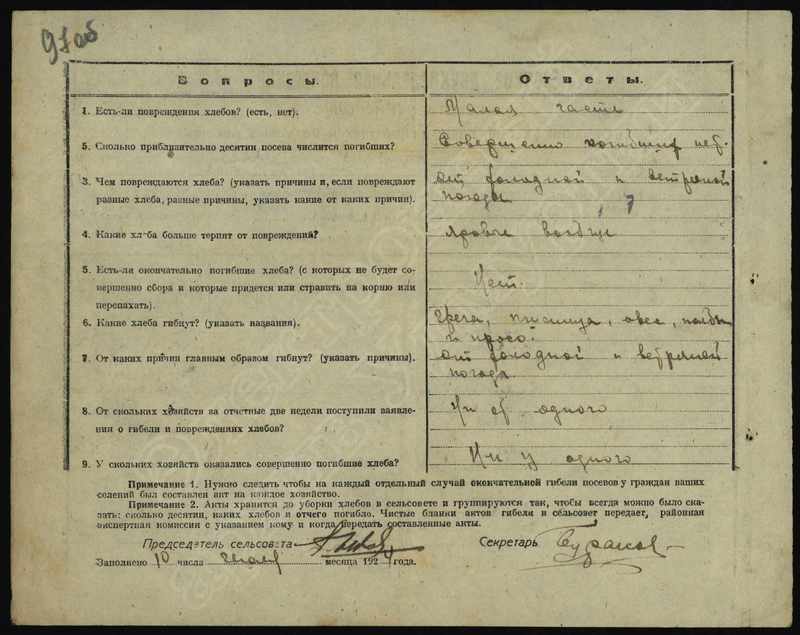 97об
Вопросы.
Ответы.
1. Есть-ли повреждения хлебов? (есть, нет).
Малая часть
5. Сколько приблизительно десятин посева числится погибших?
Совершенно погибших нет.
3. Чем повреждаются хлеба? (указать причины и, если повреждают
разные хлеба, разные причины, указать какие от каких причин).
от холодной и ветряной
погоды
4. Какие хлеба больше терпят от повреждений?
яровые вообще
5. Есть-ли окончательно погибшие хлеба? (с которых не будет со-
вершенно сбора и которые придется или стравить на корню или
перепахать).
Нет.
6. Какие хлеба гибнут? (указать названия).
Греча, пшеница, овес, полба
и просо.
7. От каких причин главным образом гибнут? (указать причины).
от холодной и ветряной
погода
8. От скольких хозяйств за отчетные две недели поступили заявле-
ния о гибели и повреждениях хлебов?
Ни от одного
9. У скольких хозяйств оказались совершенно погибшие хлеба?
Ни у одного
Примечание 1. Нужно следить чтобы на каждый отдельный случай окончательной гибели посевов у граждан ваших
селений был составлен акт на каждое хозяйство.
Примечание 2. Акты хранится до уборки хлебов в сельсовете и группируются так, чтобы всегда можно было ска-
зать: сколько десятин, каких хлебов и отчего погибло. Чистые бланки актов гибели в сельсовет передает, районная
экспертная комиссия с указанием кому и когда передать составленные акты.
Председатель сельсовета
Секретарь
Заполнено 10 числа месяца 192 года.